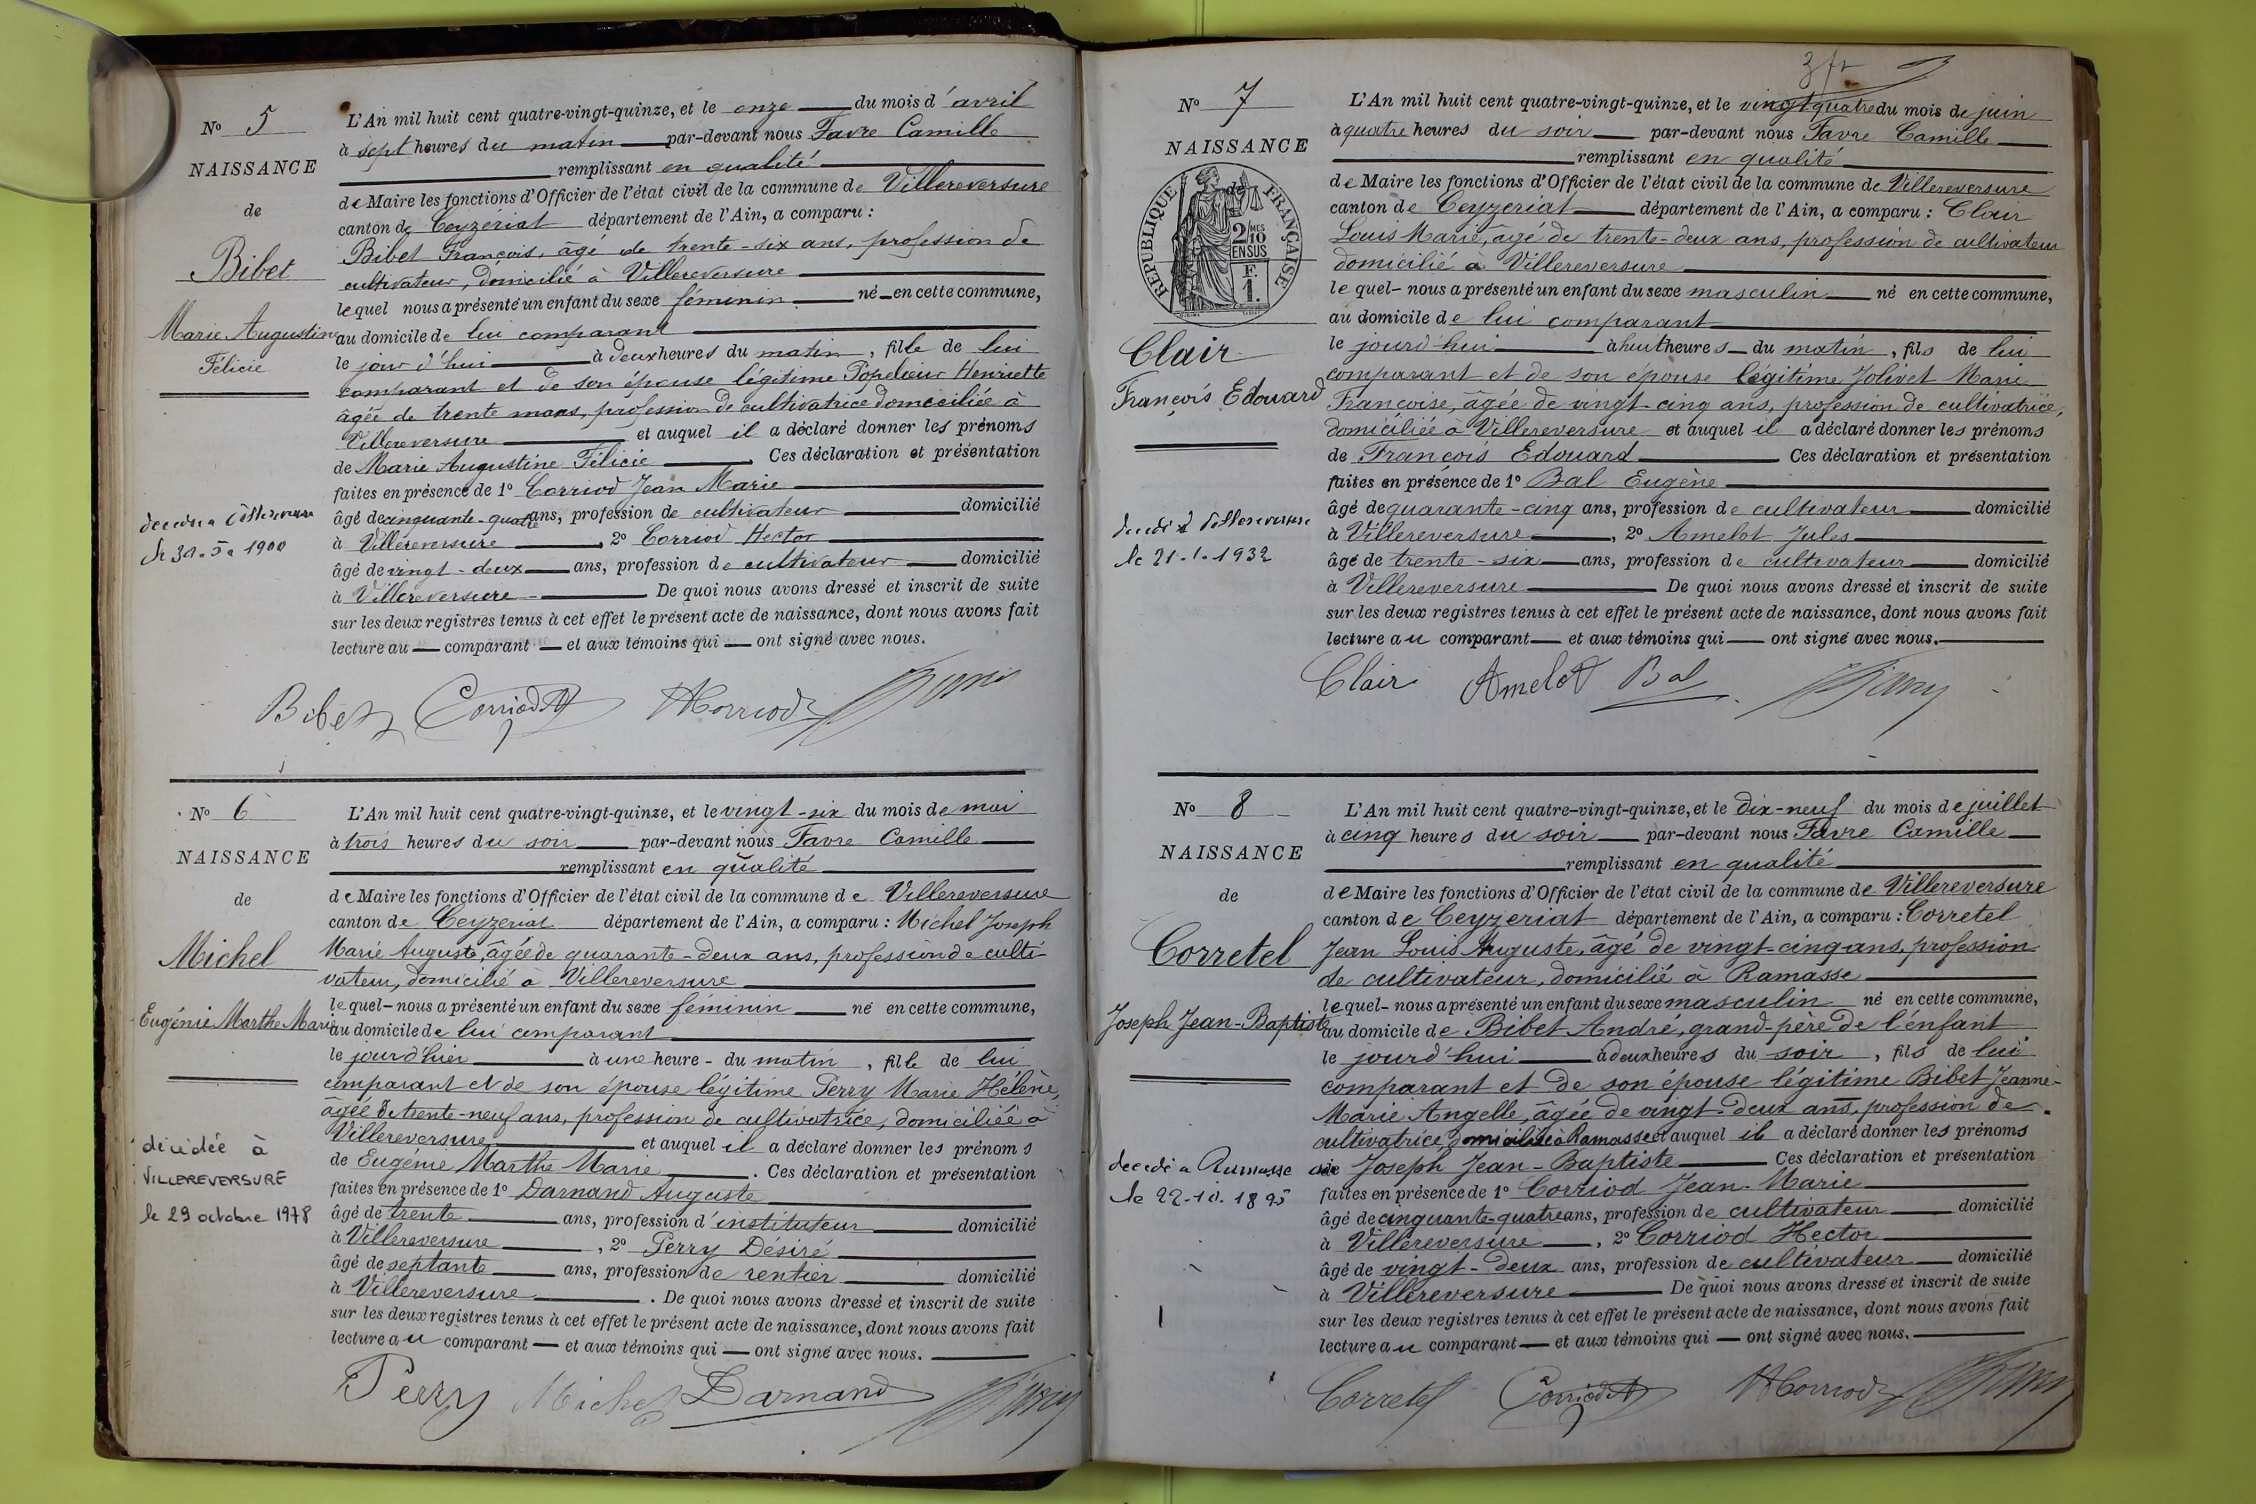 N° 5
NAISSANCE
de
Bibet
Marie Augustine
Félicie
décédée à Villereversure
le 30.5.1900
L'An mil huit cent quatre-vingt-quinze, et le onze du mois d'avril
à sept heures du matin par-devant nous Favre Camille
remplissant en qualité
de Maire les fonctions d'Officier de l'état civil de la commune de Villereversure
canton de Ceyzériat département de l'Ain, a comparu :
Bibet François, âgé de trente-six ans, profession de
cultivateur, domicilié à Villereversure
lequel nous a présenté un enfant du sexe féminin né en cette commune,
au domicile de lui comparant
le jour d'hui à deux heures du matin, fille de lui
comparant et de son épouse légitime Henriette
âgée de trente ans, profession de cultivatrice domiciliée à
Villereversure et auquel il a déclaré donner les prénoms
de Marie Augustine Félicie Ces déclaration et présentation
faites en présence de 1° Corriod Jean Marie
âgé de cinquante-quatre ans, profession de cultivateur domicilié
à Villereversure, 2° Corriod Hector
âgé de vingt-deux ans, profession de cultivateur domicilié
à Villereversure De quoi nous avons dressé et inscrit de suite
sur les deux registres tenus à cet effet le présent acte de naissance, dont nous avons fait
lecture au comparant et aux témoins qui ont signé avec nous.
Bibet Corriod HCorriod
N° 6
NAISSANCE
de
Michel
Eugénie Marthe Marie
décédée à
VILLEREVERSURE
le 29 octobre 1978
L'An mil huit cent quatre-vingt-quinze, et le vingt-six du mois de mai
à trois heures du soir par-devant nous Favre Camille
remplissant en qualité
de Maire les fonctions d'Officier de l'état civil de la commune de Villereversure
canton de Ceyzeriat département de l'Ain, a comparu : Michel Joseph
Marie Auguste, âgée de quarante-deux ans, profession de culti
vateur, domicilié à Villereversure
lequel nous a présenté un enfant du sexe féminin né en cette commune,
au domicile de lui comparant
le jourd'hier à une heure du matin, fille de lui
comparant et de son épouse légitime Perry Marie Hélène,
âgée de trente-neuf ans, profession de cultivatrice, domiciliée à
Villereversure et auquel il a déclaré donner les prénoms
de Eugénie Marthe Marie. Ces déclaration et présentation
faites en présence de 1° Darnand Auguste
âgé de trente ans, profession d'instituteur domicilié
à Villereversure, 2° Perry Désiré
âgé de septante ans, profession de rentier domicilié
à Villereversure. De quoi nous avons dressé et inscrit de suite
sur les deux registres tenus à cet effet le présent acte de naissance, dont nous avons fait
lecture au comparant et aux témoins qui ont signé avec nous.
Perry Michel Darnand
N° 7
NAISSANCE
de
RÉPUBLIQUE FRANÇAISE
2/10 MES
EN SUS
F.
1.
Clair
François Edouard
décédé à Villereversure
le 21.1.1932
L'An mil huit cent quatre-vingt-quinze, et le vingt quatre du mois de juin
à quatre heures du soir par-devant nous Favre Camille
remplissant en qualité
de Maire les fonctions d'Officier de l'état civil de la commune de Villereversure
canton de Ceyzeriat département de l'Ain, a comparu : Clair
Louis Marie, âgé de trente-deux ans, profession de cultivateur
domicilié à Villereversure
lequel nous a présenté un enfant du sexe masculin né en cette commune,
au domicile de lui comparant
le jourd'hui à huit heures du matin, fils de lui
comparant et de son épouse légitime Jolivet Marie
Françoise, âgée de vingt-cinq ans, profession de cultivatrice,
domiciliée à Villereversure et auquel il a déclaré donner les prénoms
de François Edouard Ces déclaration et présentation
faites en présence de 1° Bal Eugène
âgé de quarante-cinq ans, profession de cultivateur domicilié
à Villereversure, 2° Amelot Jules
âgé de trente-six ans, profession de cultivateur domicilié
à Villereversure De quoi nous avons dressé et inscrit de suite
sur les deux registres tenus à cet effet le présent acte de naissance, dont nous avons fait
lecture au comparant et aux témoins qui ont signé avec nous.
Clair Amelot Bal
N° 8
NAISSANCE
de
Corretel
Joseph Jean-Baptiste
décédé à Ramasse
le 22.10.1895
L'An mil huit cent quatre-vingt-quinze, et le dix-neuf du mois de juillet
à cinq heures du soir par-devant nous Favre Camille
remplissant en qualité
de Maire les fonctions d'Officier de l'état civil de la commune de Villereversure
canton de Ceyzeriat département de l'Ain, a comparu : Corretel
Jean Louis Auguste, âgé de vingt-cinq ans, profession
de cultivateur, domicilié à Ramasse
lequel nous a présenté un enfant du sexe masculin né en cette commune,
au domicile de Bibet André, grand-père de l'enfant
le jourd'hui à deux heures du soir, fils de lui
comparant et de son épouse légitime Bibet Jeanne-
Marie Angelle, âgée de vingt-deux ans, profession de
cultivatrice, domiciliée à Ramasse et auquel il a déclaré donner les prénoms
de Joseph Jean-Baptiste Ces déclaration et présentation
faites en présence de 1° Corriod Jean-Marie
âgé de cinquante-quatre ans, profession de cultivateur domicilié
à Villereversure, 2° Corriod Hector
âgé de vingt-deux ans, profession de cultivateur domicilié
à Villereversure De quoi nous avons dressé et inscrit de suite
sur les deux registres tenus à cet effet le présent acte de naissance, dont nous avons fait
lecture au comparant et aux témoins qui ont signé avec nous.
Corretel Corriod HCorriod